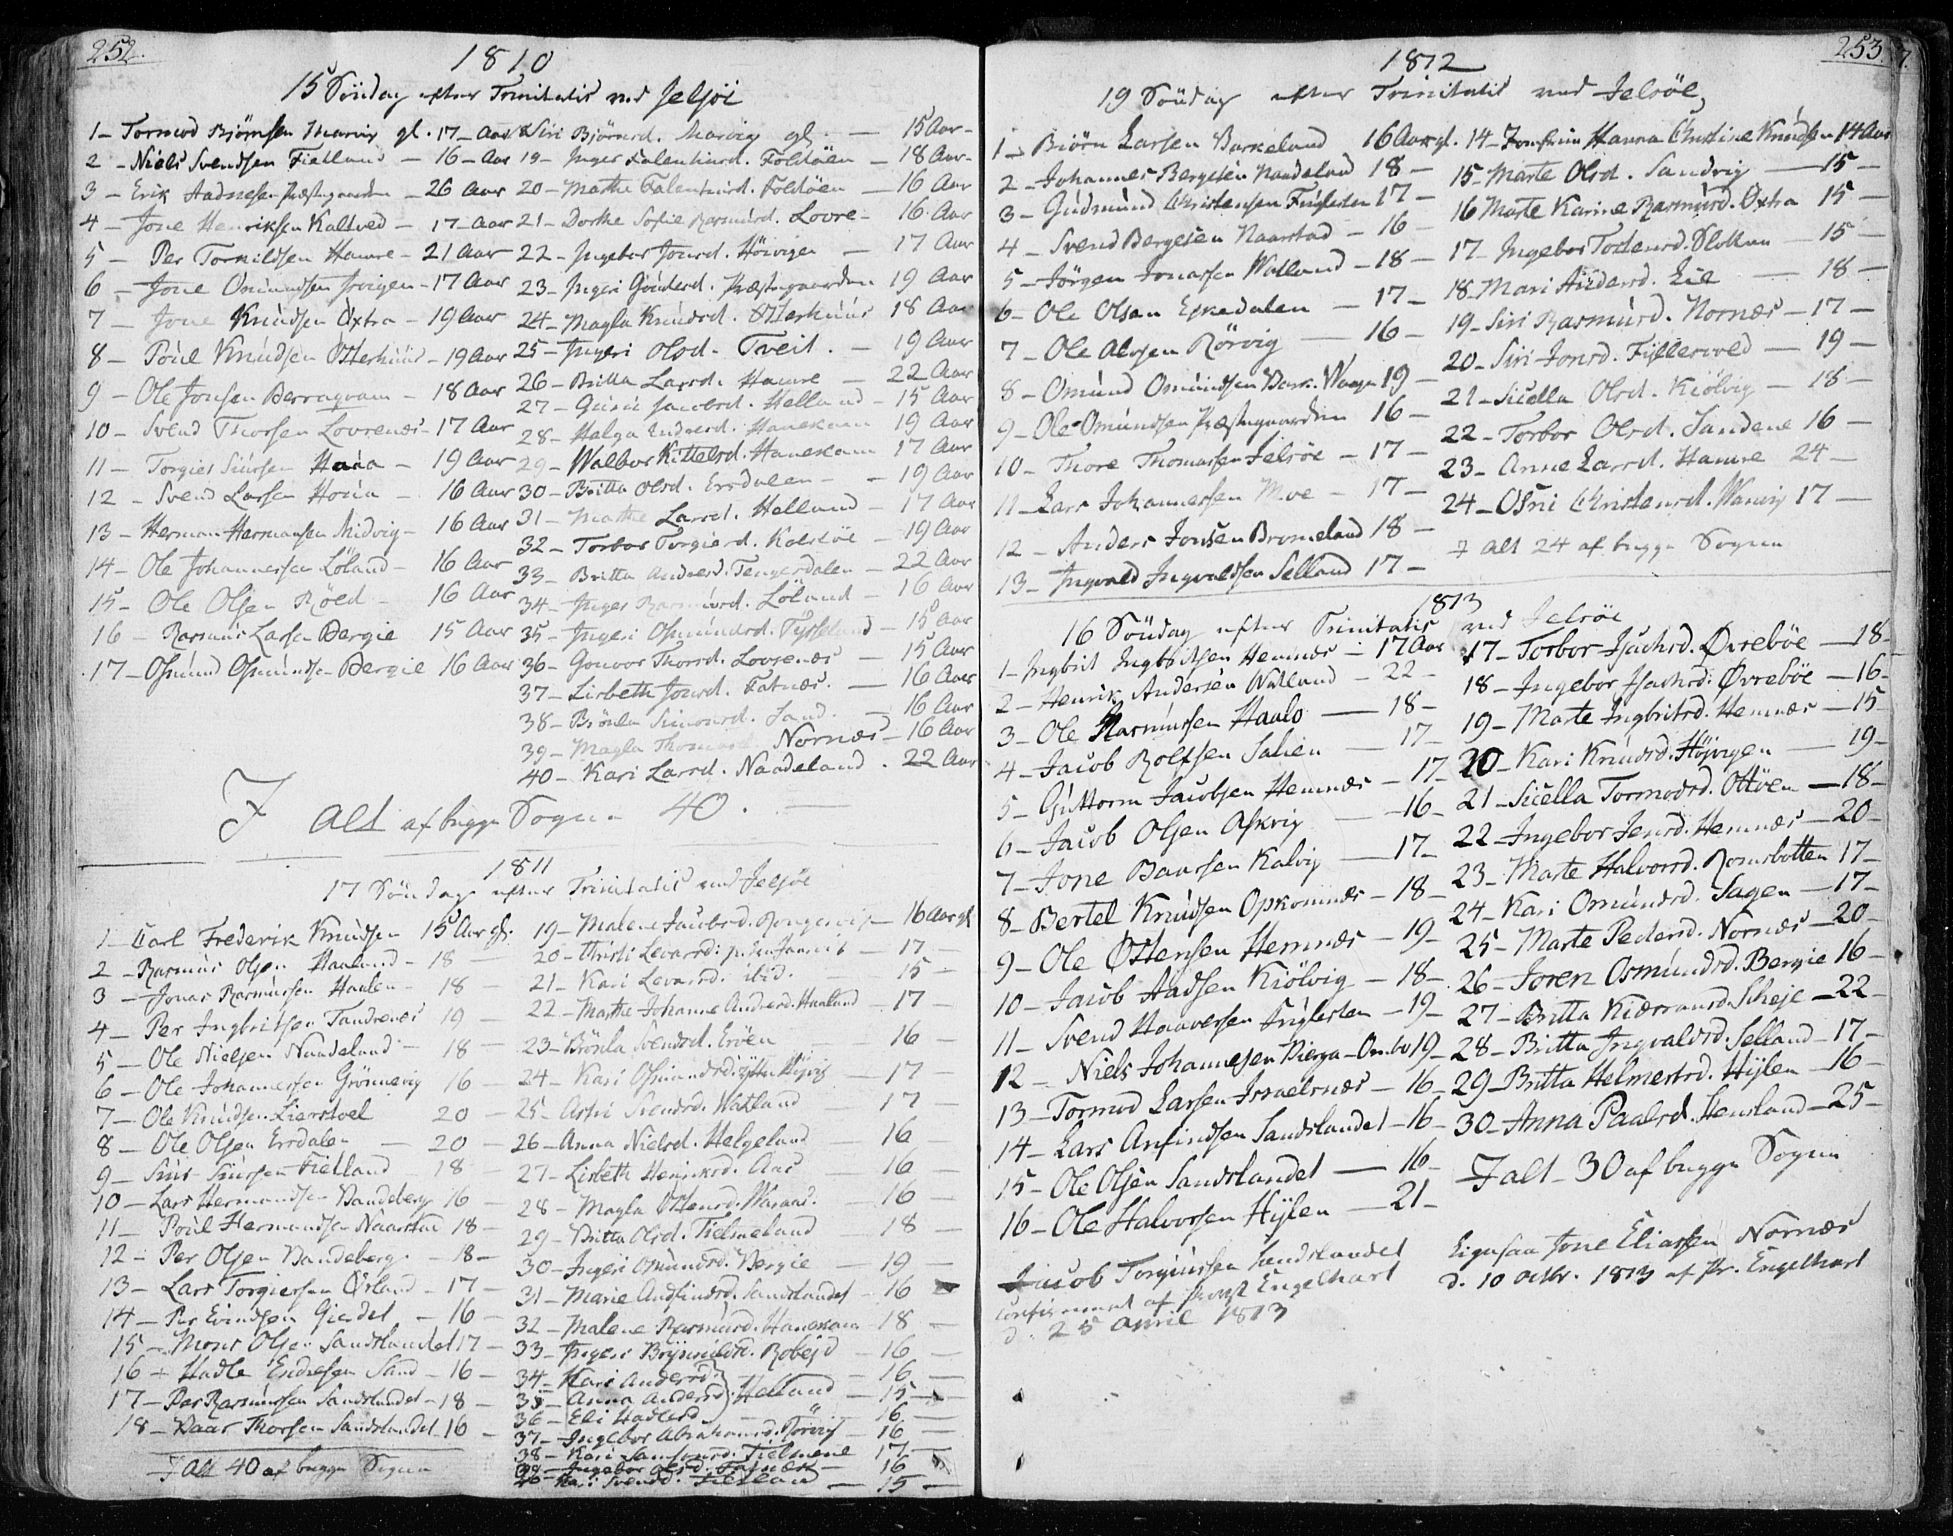 252.
1810
15 Söndag efter Trinitatis ved Jelsöe
1 - Tormod Björnsen Marvig gl. 17 - Aar
2 - Niels Svendsen Fielland - 16 - Aar
3 - Erik Hadnesen Præstegaarden - 26 Aar
4 - Jone Henriksen Kaltved - 17 Aar
5 - Per Tormildsen Hamre - 21 Aar
6 - Jone Omundsen - 17 Aar
7 - Jone Knudsen Öxtra - 19 Aar
8 - Poul Knudsen Otterhuus - 19 Aar
9 - Ole Jonsen Berraqvam - 18 Aar
10 - Svend Thorsen Lovrenæs - 17 Aar
11 - Torgier Siursen - 19 Aar
12 - Svend Larsen - 16 Aar
13 - Herman Hermansen Midvig - 16 Aar
14 - Ole Johannessen Löland - 16 Aar
15 - Ole Olsen Röed - 16 Aar
16 - Rasmus Larsen Bergie 15 Aar
17 - Osmund Osmundsen Bergie 16 Aar
Siri Björnsd. Marvig gl. - 15 Aar -
19 - Inger Falentinsd. Foldöen - 18 Aar -
20 - Marthe Falentinsd. Foldöen - 16 Aar
21 - Dorthe Sofie Rasmusd. Lovre - 16 Aar
22 - Ingebor Jonsd. Höivigen - 17 Aar
23 - Ingeri Præstegaarden 19 Aar
24 - Magla Knudsd. Otterhuus 18 Aar
25 - Ingeri Olsd. Tveit. - 19 Aar
26 - Britta Larsd. Hamre - 22 Aar
27 - Jacobsd. Helland - 15 Aar
28 - Helga Endresd. Hanekam 19 Aar
29 - Walbor Kittelsd. Hanekam 17 Aar
30 - Britta Olsd. Ersdalen - 19 Aar
31 - Marthe Larsd. Helland - 17 Aar
32 - Torbor Torgiersd. - 19 Aar
33 - Britta Andersd. Tengesdalen - 22 Aar
34 - Inger Rasmusd. Löland - 16 Aar
35 - Ingeri Osmundsd. Tysseland - 15 Aar
36 - Gonvor Thorsd. Lovrenæs - 15 Aar
37 - Lisbeth Jonsd. Fatnæs. - 16 Aar
38 - Brönla Simonsd. Sand. - 16 Aar
39 - Magla Nornæs - 16 Aar
40 - Kari Larsd. Naadeland. 22 Aar
I Alt af begge Sogne 40.
1811
17 Söndag efter Trinitatis ved Jelsöe
1 - Carl Frederik Knudsen 15 Aar gl.
2 - Rasmus Olsen Haaland - 18 -
3 - Jonas Rasmussen Haalen - 18 -
4 - Per Ingbritsen Tandrenæs 19 -
5 - Ole Nielsen Naadeland - 18 -
6 - Ole Johannessen Grönnevig 16 -
7 - Ole Knudsen Lierstoel 20 -
8 - Ole Olsen Ersdalen - 20 -
9 - Siur Siursen Fielland 18 -
10 - Lars Hermandsen Vandeberg 16 -
11 - Poul Hermandsen 18 -
12 - Per Olsen Vandeberg. - 18 -
13 - Lars Torgiersen Ørland - 17 -
14 - Per Eivindsen Gierdet - 16 -
15 - Mons Olsen Sandslandet 17 -
16 - Hadle Endresen Sand - 16 -
17 - Per Rasmussen Sandslandet - 18 -
18 - Baar Thorsen Sandslandet 16 -
I Alt 40 af begge Sogne
19 - Malene Jacobsd. - 16 Aar gl
20 - Christi Levorsd. - 17 -
21 - Kari Levorsd. ibid. 15 -
22 - Marthe Johanne Andersd. Haaland - 17 -
23 - Brönla Svendsd. Eröen 16 -
24 - Kari Osmundsd. - 17 -
25 - Asni Svendsd. Watland - 17 -
26 - Anna Nielsd. Helgeland - 16
27 - Lisbeth Henriksd. Aas - 16 -
28 - Magla Ostensd. - 16 -
29 - Britta Olsd. Tielmeland - 18 -
30 - Ingeri Osmundsd. Bergie - 19 -
31 - Marie Andfindsd. Sandslandet - 16
32 - Malene Rasmusd. Hanekam - 18 -
33 - Ingeri Robejd - 16 -
34 - Kari Andersd. - 16 -
35 - Anna Andersd. Helland - 15 -
36 - Eli Hadlesd. - 16 -
37 - Ingebor Abrahamsd. Rörvig - 16 -
38 - Kari Tielmene 17 -
39 - Ingebor Olsd. Fatnæs - 16
40 - Kari Svendsd. Fielland - 15 -
253.
1812
19 Söndag efter Trinitatis ved Jelsöe,
1 - Biörn Larsen Barkeland 16 Aar gl.
2 - Johannes Bergesen Naadeland 18 -
3 - Gudmund Christensen Fuglesten 17 -
4 - Svend Bergesen Naarstad - 16 -
5 - Jörgen Jonassen Watland - 18 -
6 - Ole Olsen Eskedalen - 17 -
7 - Ole Olsen Rörvig - 16 -
8 - Omund Omundsen 19 -
9 - Ole Omundsen Præstegaarden 16 -
10 - Thore Thomassen Jelsöe - 17 -
11 - Lars Johannessen Moe - 17 -
12 - Anders Jonsen Bromeland 18 -
13 - Ingvald Ingvaldsen Selland 17 -
14 - Jomfrue Hanna Christine Knudsen 14 Aar
15 - Marte Olsd. Sandvig - 15 -
16 Marte Karine Rasmusd. Öxtra 15 -
17 - Ingebor Tostensd. - 15 -
18 - Mari Lie - 18 -
19 - Siri Rasmusd. Nornæs - 17 -
20 - Siri Jonsd. - 19 -
21 - Sicella Olsd. Kiölvig - 18 -
22 - Torbor Olsd. Sandene 16 -
23 - Anne Larsd. Hamre 24 -
24 - Osni Christensd. 17 -
I alt 24 af begge Sogne
1813
16 Söndag efter Trinitatis ved Jelsöe
1 - Ingbrit Ingbritsen Hemnæs - 17 Aar
2 - Henrik Andersen Watland - 22 -
3 - Ole Rasmussen Haalo - 18 -
4 - Jacob Rolfsen Salien - 17 -
5 - Guttorm Jacobsen Hemnæs - 17 -
6 - Jacob Olsen Askvig - 16 -
7 - Jone Baarsen Kalvig - 17 -
8 - Bertel Knudsen Opkomnæs - 18 -
9 - Ole Ostensen Hemnæs - 19 -
10 - Jacob Aadsen Kiölvig - 18 -
11 - Svend Haavorsen Fuglesten - 19 -
12 - Niels Johannesen Bierga - Ombo 19 -
13 - Tormod Larsen Israelsnæs - 16 -
14 - Lars Anfindsen Sandslandet - 16 -
15 - Ole Olsen Sandslandet - 16 -
16 - Ole Halvorsen Hylen - 21 -
17 - Torbor Isachsd. Øvreböe - 18 -
18 - Ingebor Isachsd. Øvreböe - 16 -
19 - Marte Ingbritsd. Hemnæs - 15
20 - Kari Knudsd. Höjvigen - 19 -
21 - Sicella Tormodsd. Ottöen - 18 -
22 - Ingebor Jensd. Hemnæs - 20 -
23 - Marte Halvorsd. Romsbotten 17 -
24 - Kari Omundsd. Sagen - 17 -
25 - Marte Pedersd. Nornæs - 20 -
26 - Joren Osmundsd. Bergie 16 -
27 - Britta Scheje - 22 -
28 - Britta Ingvaldsd. Selland - 17 -
29 - Britta Helmersd. Hylen - 16 -
30 - Anna Paalsd. Hensland - 25 -
I alt - 30 af begge Sogne
Jacob Torgiersen Sandslandet
confirmeret af Provst Engelhart
d. 25 April 1813
Ligesaa Jone Eliassen Nornæs
d. 10 Octbr. 1813 af Pr. Engelhart